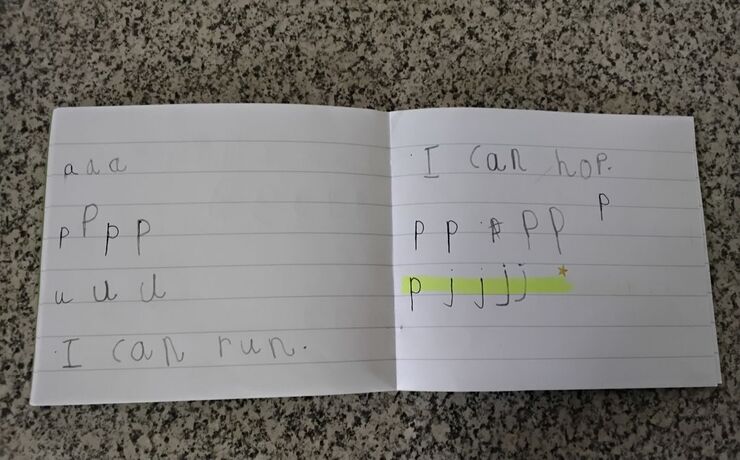 a a a
p p p p
u u u
I can run.
I can hop.
p
p p p p p
p j j j j